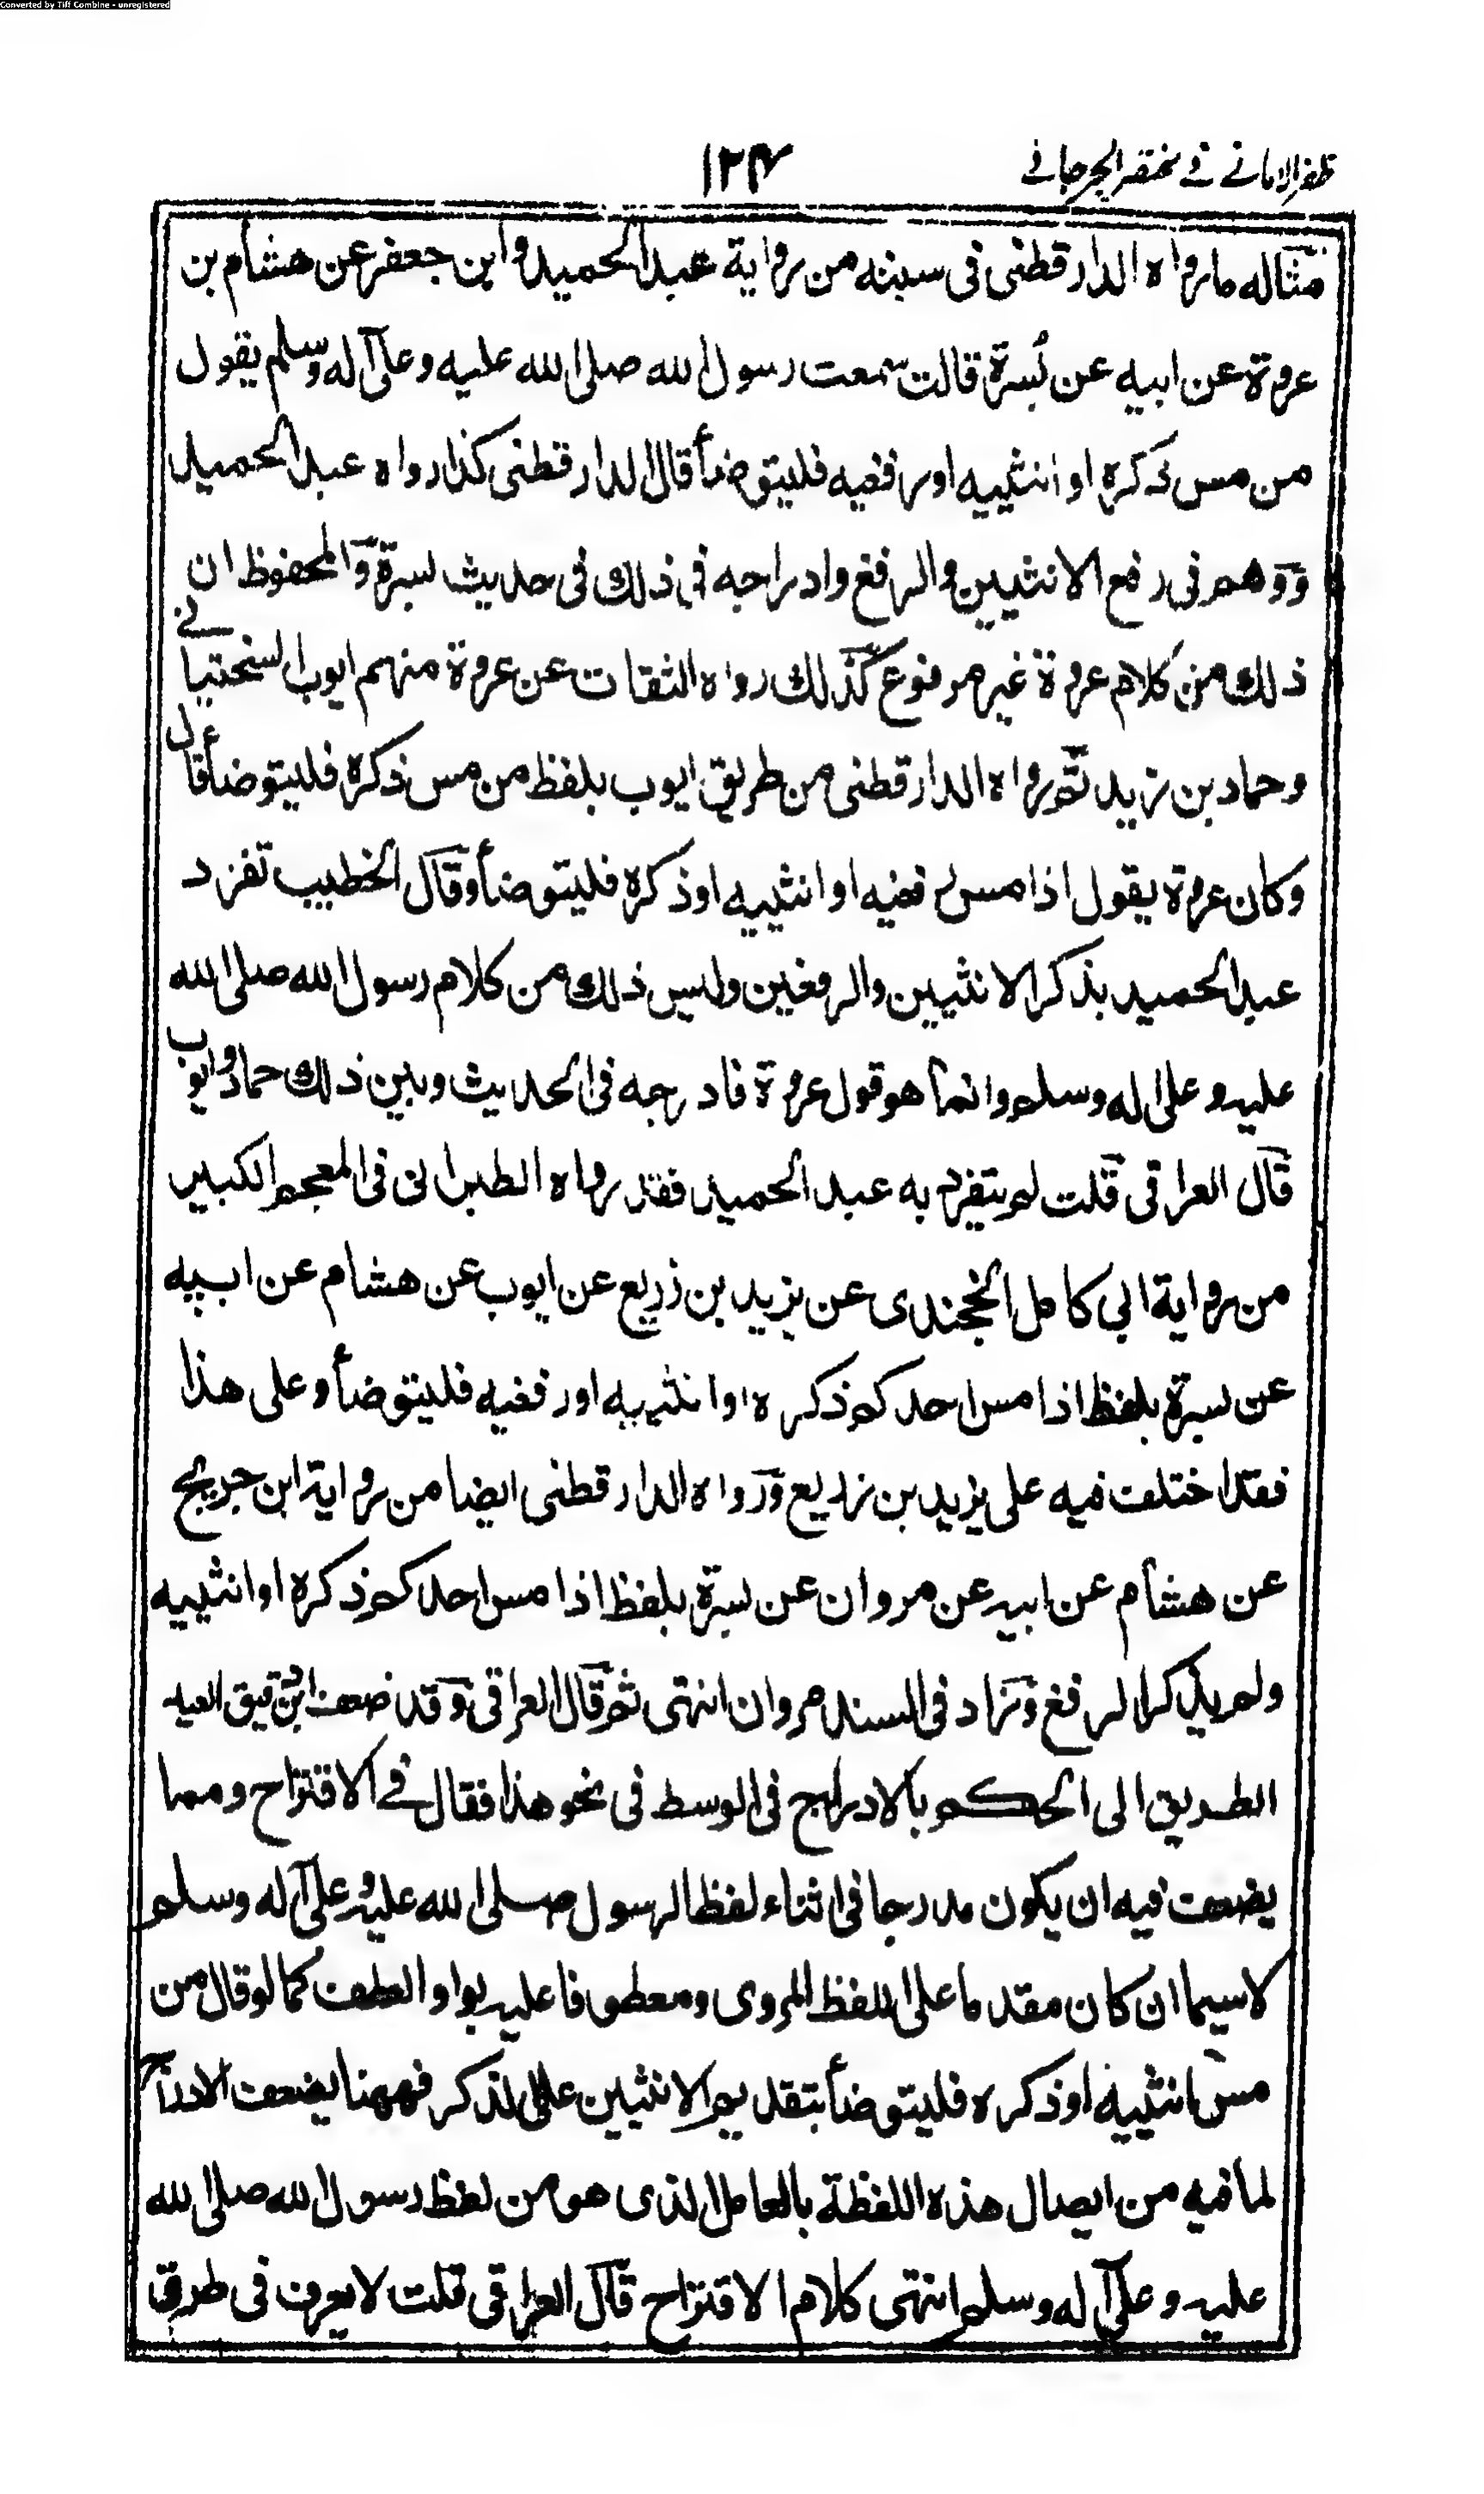 Converted by Tiff Combine - unregistered
ظفر الامانے فے مختصر الجرجانے
١٢٧
مثاله ما رواه الدارقطنى فى سننه من رواية عبد الحميد وابن جعفر عن هشام بن
عروة عن ابيه عن بُسرة قالت سمعت رسول الله صلى الله عليه وعلى آله وسلم يقول
من مس ذكره او انثييه او رفغيه فليتوضأ قال الدارقطنى كذا رواه عبد الحميد
ووهم فى رفع الانثيين والرفغ وادراجه فى ذلك فى حديث بسرة والمحفوظ ان
ذلك من كلام عروة غير مرفوع كذلك رواه الثقات عن عروة منهم ايوب السختيانے
وحماد بن زيد ثم رواه الدارقطنى من طريق ايوب بلفظ من مس ذكره فليتوضأ قال
وكان عروة يقول اذا مس رفغيه او انثييه او ذكره فليتوضأ وقال الخطيب تفرد
عبد الحميد بذكر الانثيين والرفغين وليس ذلك من كلام رسول الله صلى الله
عليه وعلى اله وسلم وانما هو قول عروة فادرجه فى الحديث وبين ذلك حماد وايوب
قال العراقى قلت لم يتفرد به عبد الحميد فقد رواه الطبرانى فى المعجم الكبير
من رواية ابي كامل الخجندى عن يزيد بن زريع عن ايوب عن هشام عن ابيه
عن بسرة بلفظ اذا مس احدكم ذكره او انثييه او رفغيه فليتوضأ وعلى هذا
فقد اختلف فيه على يزيد بن زريع ورواه الدارقطنى ايضا من رواية ابن جريج
عن هشام عن ابيه عن مروان عن بسرة بلفظ اذا مس احدكم ذكره او انثييه
ولم يذكر الرفغ وزاد فى السند مروان انتهى ثم قال العراقى وقد ضعف ابن دقيق العيد
الطريق الى الحكم بالادراج فى الوسط فى نحو هذا فقال فے الاقتراح ومما
يضعف فيه ان يكون مدرجا فى اثناء لفظ الرسول صلى الله عليه وعلى آله وسلم
لاسيما ان كان مقدما على اللفظ المروى ومعطوفا عليه بواو العطف كما لو قال من
مس انثييه او ذكره فليتوضأ بتقديم الانثيين على الذكر فههنا يضعف الادراج
لما فيه من ايصال هذه اللفظة بالعامل الذى هو من لفظ رسول الله صلى الله
عليه وعلى آله وسلم انتهى كلام الاقتراح قال العراقى قلت لا يعرف فى طرق